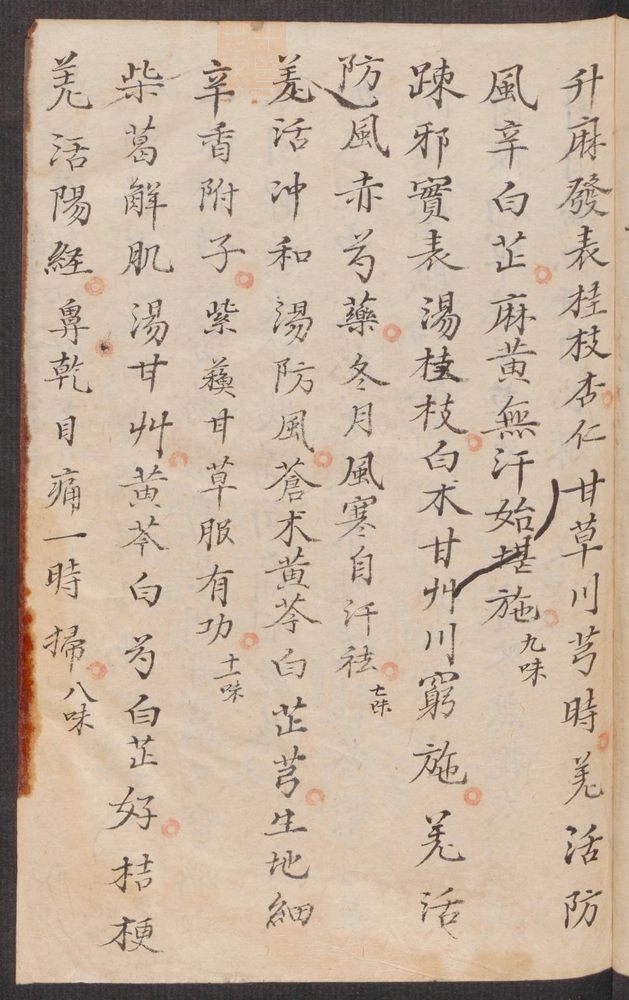 升麻發表桂枝杏仁甘草川芎時羗活防
風辛白芷麻黄無汗始堪施九味
踈邪實表湯桂枝白术甘艸川窮施羗活
防風赤芍藥冬月風寒自汗祛七味
羗活冲和湯防風蒼术黄芩白芷芎生地細
辛香附子紫蘓甘草服有功十一味
柴葛解肌湯甘艸黄芩白芍白芷好桔梗
羗活陽経鼻乾目痛一時掃八味